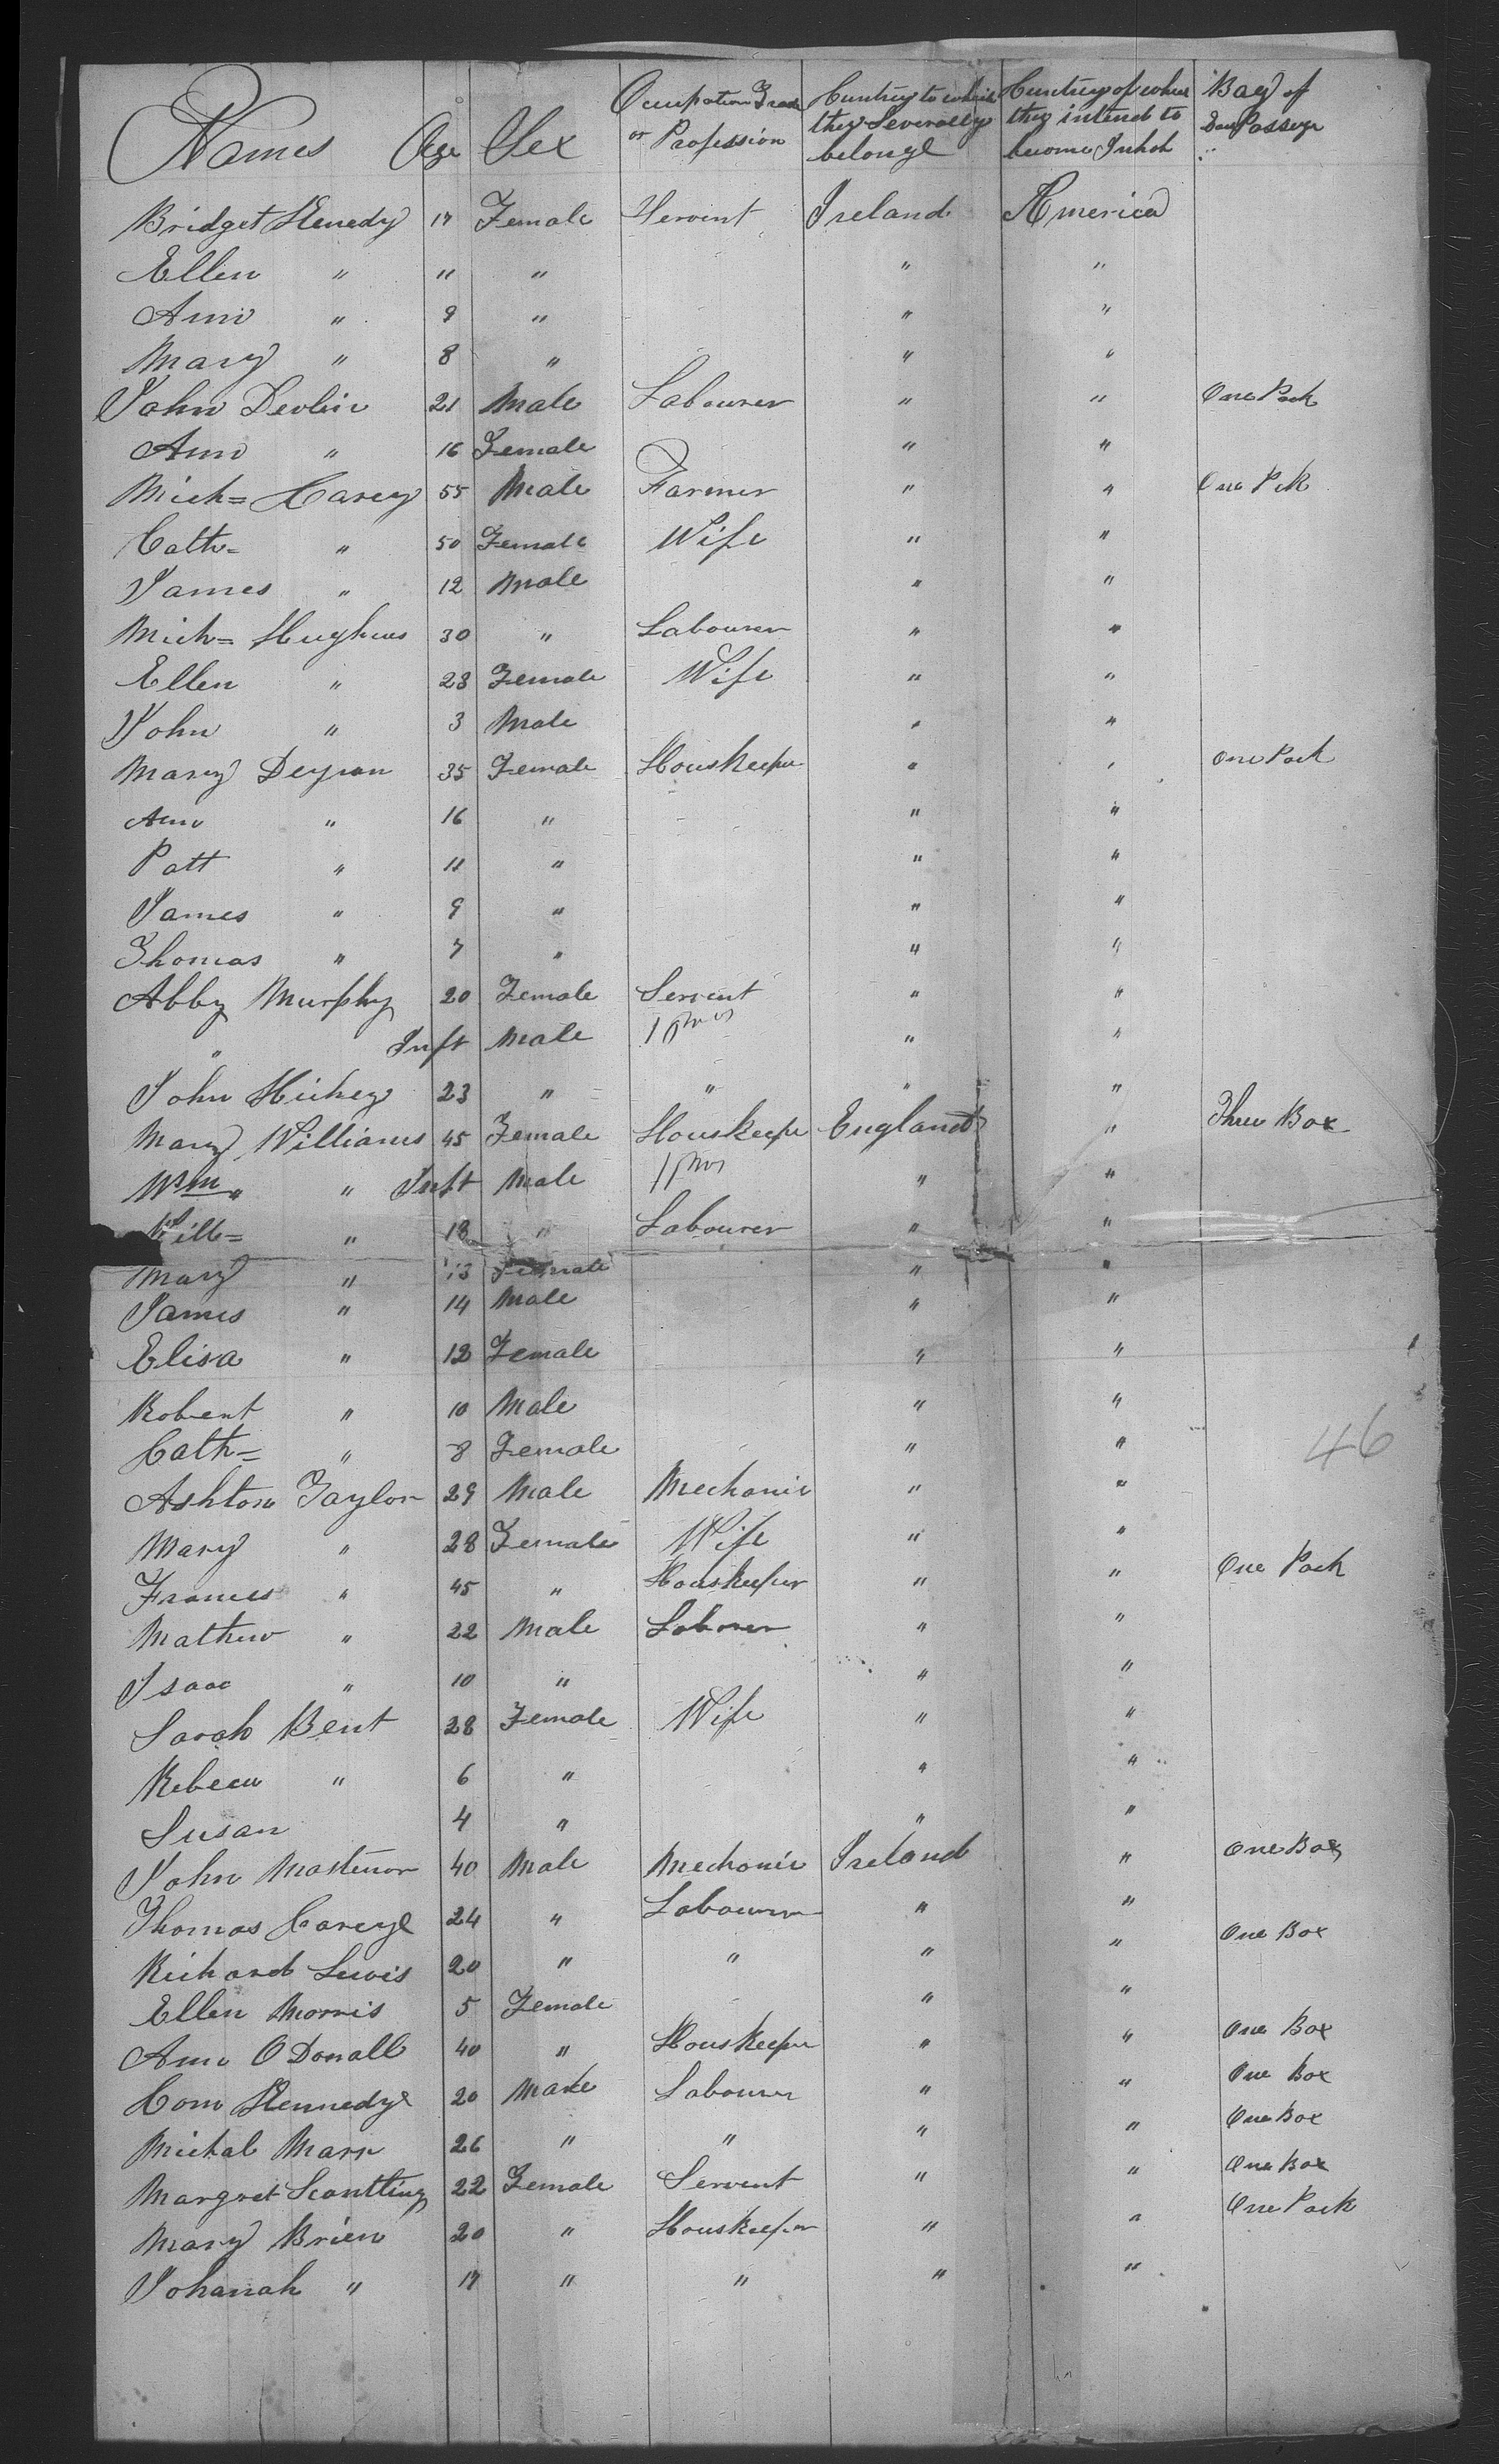 Names Age Sex Occupation Trade or Profession Cuntry to which they Severally belong Cuntry of which they intend to become Inhab Bag of Passage
Bridget Kenedy 17 Female Servent Ireland America
Ellen " 11 " " "
Ann " 9 " " "
Mary " 8 " " "
John Devlin 21 Male Labourer " " One Pack
Ann " 16 Female " "
Mich= Carey 55 Male Farmer " " One Pck
Cath= " 50 Female Wife " "
James " 12 Male " "
Mich= Hughues 30 " Labourer " "
Ellen " 23 Female Wife " "
John " 3 Male " "
Mary Deynan 35 Female Houskeeper " " One Pack
Ann " 16 " " "
Patt " 11 " " "
James " 9 " " "
Thomas " 7 " " "
Abby Murphy 20 Female Servent " "
" Inft Male " "
John Hickey 23 " " " "
Mary Williams 45 Female Houskeepe England " Three Box
Wm " " Inft Male " "
Will= " 18 " Labourer " "
Mary " 13 Female " "
James " 14 Male " "
Elisa " 12 Female " "
Robert " 10 Male " "
Cath= " 8 Female " "
46
Ashton Taylor 29 Male Mechanic " "
Mary " 28 Female Wife " "
Frances " 45 " Houskeeper " " One Pack
Mathew " 22 Male Laborer " "
Isaac " 10 " " "
Sarah Bent 28 Female Wife " "
Rebecca " 6 " " "
Susan 4 " " "
John Mastenor 40 Male Mechanic Ireland " One Box
Thomas Carey 24 " Labourer " "
Richard Lewis 20 " " " " One Box
Ellen Morris 5 Female " "
Ann O Donall 40 " Houskeeper " " One Box
Corn Kennedy 20 Male Labourer " " One Box
Michal Marr 26 " " " " One Box
Margret Scantling 22 Female Servent " " One Box
Mary Brien 20 " Houskeeper " " One Pack
Johanah " 17 " " " "